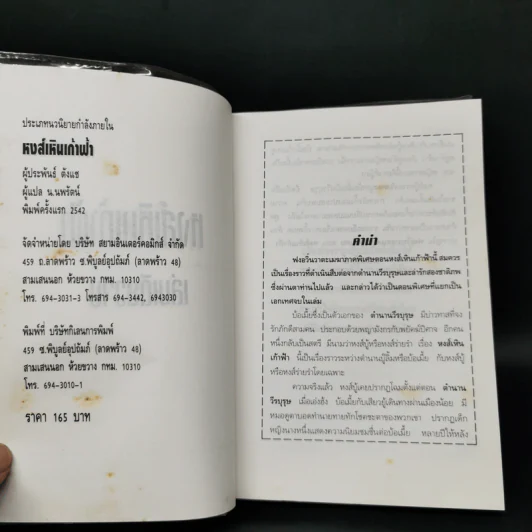 ประเภทนวนิยายกำลังภายใน
หงส์เหินเก้าฟ้า
ผู้ประพันธ์ ตั้งแซ
ผู้แปล น.นพรัตน์
พิมพ์ครั้งแรก 2542
จัดจำหน่ายโดย บริษัท สยามอินเตอร์คอมิกส์ จำกัด
459 ถ.ลาดพร้าว ซ.พิบูลย์อุปถัมภ์ (ลาดพร้าว 48)
สามเสนนอก ห้วยขวาง กทม. 10310
โทร. 694-3031-3 โทรสาร 694-3442, 6943030
พิมพ์ที่ บริษัทกิเลนการพิมพ์
459 ซ.พิบูลย์อุปถัมภ์ (ลาดพร้าว 48)
สามเสนนอก ห้วยขวาง กทม. 10310
โทร. 694-3010-1
ราคา 165 บาท
คำนำ
ฟงอวิ๋นวาตะเมฆาภาคพิเศษตอนหงส์เหินเก้าฟ้านี้ สมควร
เป็นเรื่องราวที่ดำเนินสืบต่อจากตำนานวีรบุรุษและล่ารักสองชาติภพ
ซึ่งผ่านตาท่านไปแล้ว และกล่าวได้ว่าเป็นตอนพิเศษที่แยกเป็น
เอกเทศจบในเล่ม
ป้อเมี้ยซึ่งเป็นตัวเอกของ ตำนานวีรบุรุษ มีบ่าวทาสที่จง
รักภักดีสามคน ประกอบด้วยพญามังกรกับพยัคฆ์ปีศาจ อีกคน
หนึ่งกลับเป็นสตรี มีนามว่าหงส์ผู้หรือหงส์ร่ายรำ เรื่อง หงส์เหิน
เก้าฟ้า นี้เป็นเรื่องราวระหว่างตำนานปู่ลิ้มหรือป้อเมี้ย กับหงส์ผู้
หรือหงส์ร่ายรำโดยเฉพาะ
ความจริงแล้ว หงส์ผู้เคยปรากฏโฉมตั้งแต่ตอน ตำนาน
วีรบุรุษ เมื่อฮ่งฮั้ง ป้อเมี้ยกับเสียวผู้เดินทางผ่านเมืองน้อย มี
หมอดูตาบอดทำนายทายทักโชคชะตาของพวกเขา ปรากฏเด็ก
หญิงนางหนึ่งแสดงความนิยมชมชื่นต่อป้อเมี้ย หลายปีให้หลัง